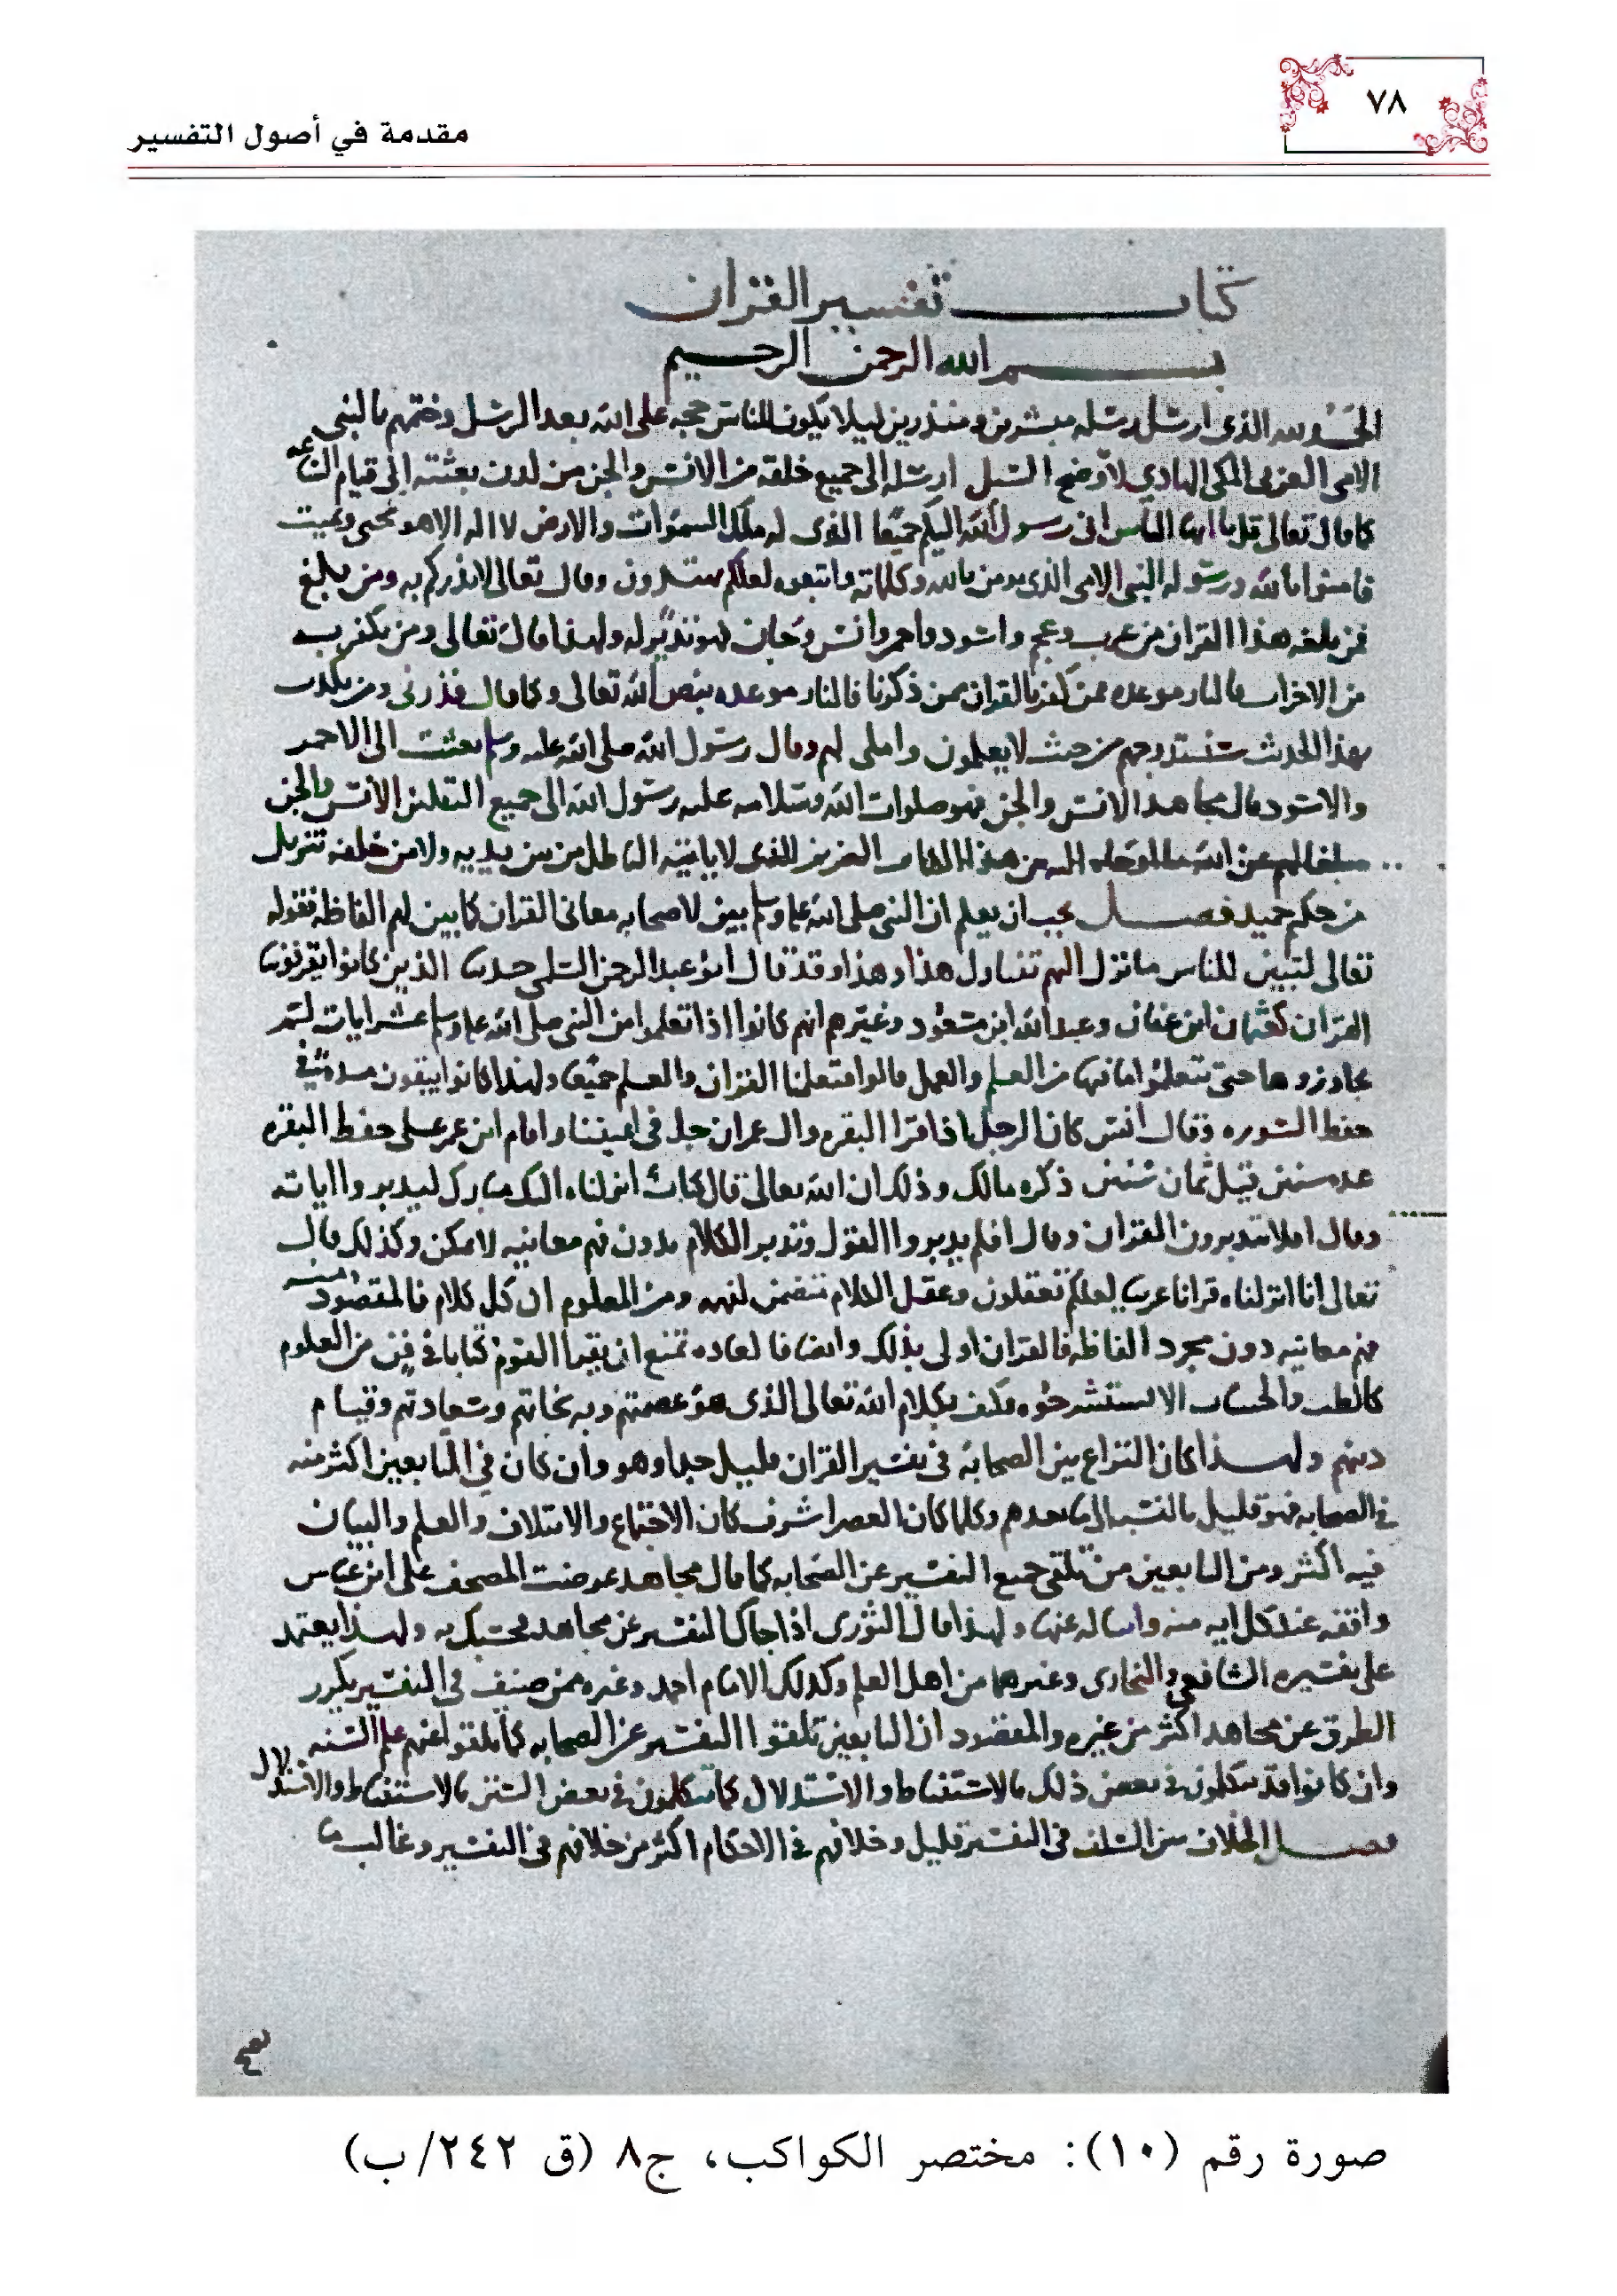 ٧٨
مقدمة في أصول التفسير
كتاب تفسير القران
بسم الله الرحمن الرحيم
الحمد لله الذي ارسل رسله مبشرين ومنذرين ليلا يكون للناس حجه على الله بعد الرسل وختمهم بالنبي
الامي العربي المكي الهادي لاوضح السبل ارسله الى جميع خلقه من الانس والجن من لدن بعثته الى قيام الساعه
كما قال تعالى قل يا ايها الناس اني رسول الله اليكم جميعا الذي له ملك السموات والارض لا اله الا هو يحي ويميت
فامنوا بالله ورسوله النبي الامي الذي يومن بالله وكلماته واتبعوه لعلكم تهتدون وقال تعالى لانذركم به ومن بلغ
فمن بلغه هذا القران من عرب وعجم واسود واحمر وانس وجان فهو نذير له ولهذا قال تعالى ومن يكفر به
من الاحزاب فالنار موعده فمن كفر بالقران ممن ذكرنا فالنار موعده بنص الله تعالى وكما قال فذرني ومن يكذب
بهذا الحديث سنستدرجهم من حيث لا يعلمون واملي لهم وقال رسول الله صلى الله عليه وسلم بعثت الى الاحمر
والاسود قال مجاهد الانس والجن فهو صلوات الله وسلامه عليه رسول الله الى جميع الثقلين الانس والجن
مبلغا لهم عن الله ما اوحاه اليه من هذا الكتاب العزيز الذي لا ياتيه الباطل من بين يديه ولا من خلفه تنزيل
من حكيم حميد فصل يجب ان يعلم ان النبي صلى الله عليه وسلم بين لاصحابه معاني القران كما بين لهم الفاظه فقوله
تعالى لتبين للناس ما نزل اليهم تناول هذا وهذا وقد قال ابو عبد الرحمن السلمي حدثنا الذين كانوا يقرئوننا
القران كعثمان ابن عفان وعبد الله ابن مسعود وغيرهم انهم كانوا اذا تعلموا من النبي صلى الله عليه وسلم عشر ايات لم
يجاوزوها حتى يتعلموا ما فيها من العلم والعمل قالوا فتعلمنا القران والعلم جميعا ولهذا كانوا يبقون مدة في
حفظ السوره وقال انس كان الرجل اذا قرا البقره وال عمران جل في اعيننا واقام ابن عمر على حفظ البقره
عده سنين قيل ثمان سنين ذكره مالك وذلك ان الله تعالى قال كتاب انزلناه اليك مبارك ليدبروا اياته
وقال افلا يتدبرون القران وقال افلم يدبروا القول وتدبر الكلام بدون فهم معانيه لا يمكن وكذلك قال
تعالى انا انزلناه قرانا عربيا لعلكم تعقلون وعقل الكلام متضمن لفهمه ومن المعلوم ان كل كلام فالمقصود منه
فهم معانيه دون مجرد الفاظه فالقران اولى بذلك وايضا فالعاده تمنع ان يقرا القوم كتابا في فن من العلوم
كالطب والحساب الا يستشرحوه فكيف بكلام الله تعالى الذي هو عصمتهم وبه نجاتهم وسعادتهم وقيام
دينهم ولهذا كان النزاع بين الصحابه في تفسير القران قليل جدا وهو وان كان في التابعين اكثر منه
في الصحابه فهو قليل بالنسبه الى ما بعدهم وكلما كان العصر اشرف كان الاجتماع والائتلاف والعلم والبيان
فيه اكثر ومن التابعين من تلقى جميع التفسير عن الصحابه كما قال مجاهد عرضت المصحف على ابن عباس
واقفه عند كل ايه منه واساله عنها ولهذا قال الثوري اذا جاك التفسير عن مجاهد فحسبك به ولهذا يعتمد
على تفسيره الشافعي والبخاري وغيرهما من اهل العلم وكذلك الامام احمد وغيره ممن صنف في التفسير يكرر
الطرق عن مجاهد اكثر من غيره والمقصود ان التابعين تلقوا التفسير عن الصحابه كما تلقوا عنهم علم السنه
وان كانوا قد يتكلمون في بعض ذلك بالاستنباط والاستدلال كما يتكلمون في بعض السنن بالاستنباط والاستدلال
فصل الخلاف بين السلف في التفسير قليل وخلافهم في الاحكام اكثر من خلافهم في التفسير وغالب ما
صورة رقم (١٠): مختصر الكواكب، ج٨ (ق ٢٤٢/ب)